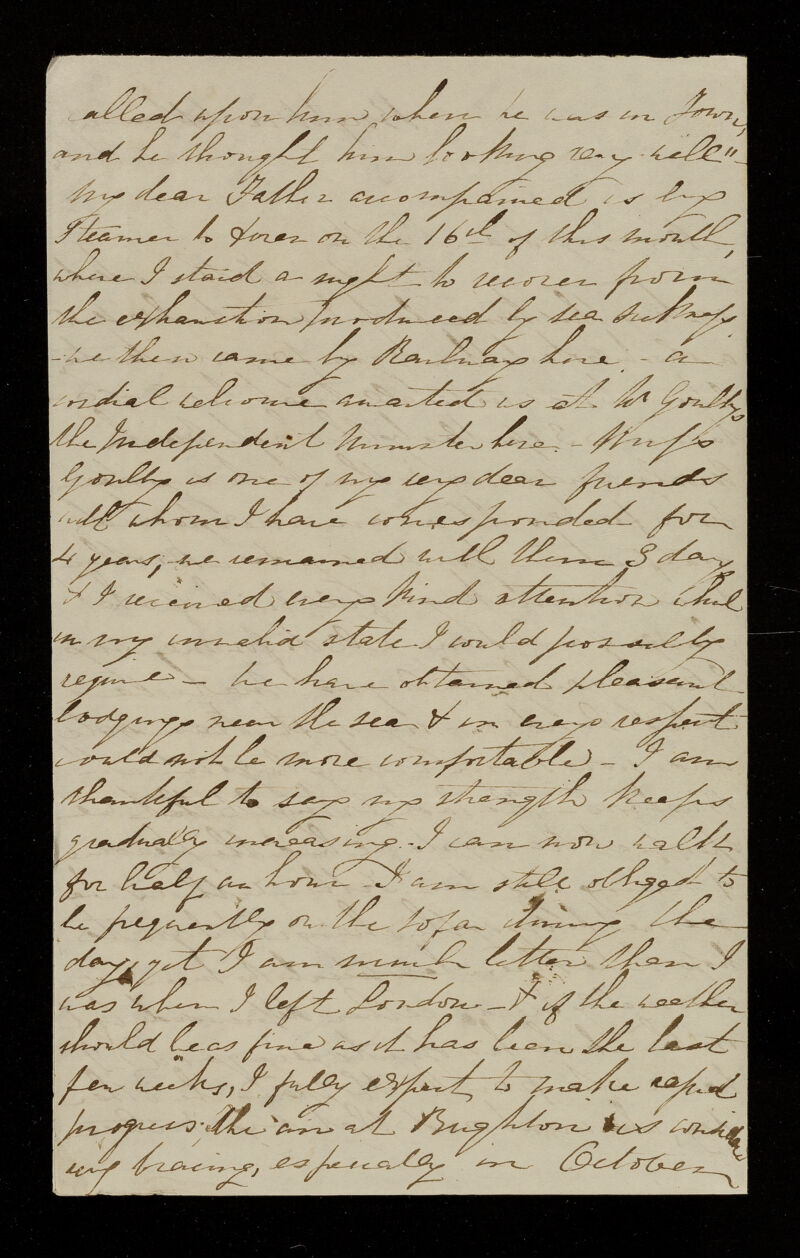 called upon him when he was in Town,
and he thought him looking very well" -
My dear Father accompanied us by
Steamer to Dover on the 16th of this month,
where I staid a night to recover from
the exhaustion produced by sea sickness
- we then came by Railway here - a
cordial welcome awaited us at Mr Goulty's
the Independent Minister here. - Miss
Goulty is one of my very dear friends
with whom I have corresponded for
4 years, we remained with them 3 days
& I received every kind attention which
in my invalid state I could possibly
require - We have obtained pleasant
lodgings near the sea & in every respect
could not be more comfortable - I am
thankful to say my strength keeps
gradually increasing. I can now walk
for half an hour - I am still obliged to
be frequently on the sofa during the
day, yet I am much better than I
was when I left London - & if the weather
should be as fine as it has been the last
few weeks, I fully expect to make rapid
progress; the air at Brighton is
very bracing, especially in October